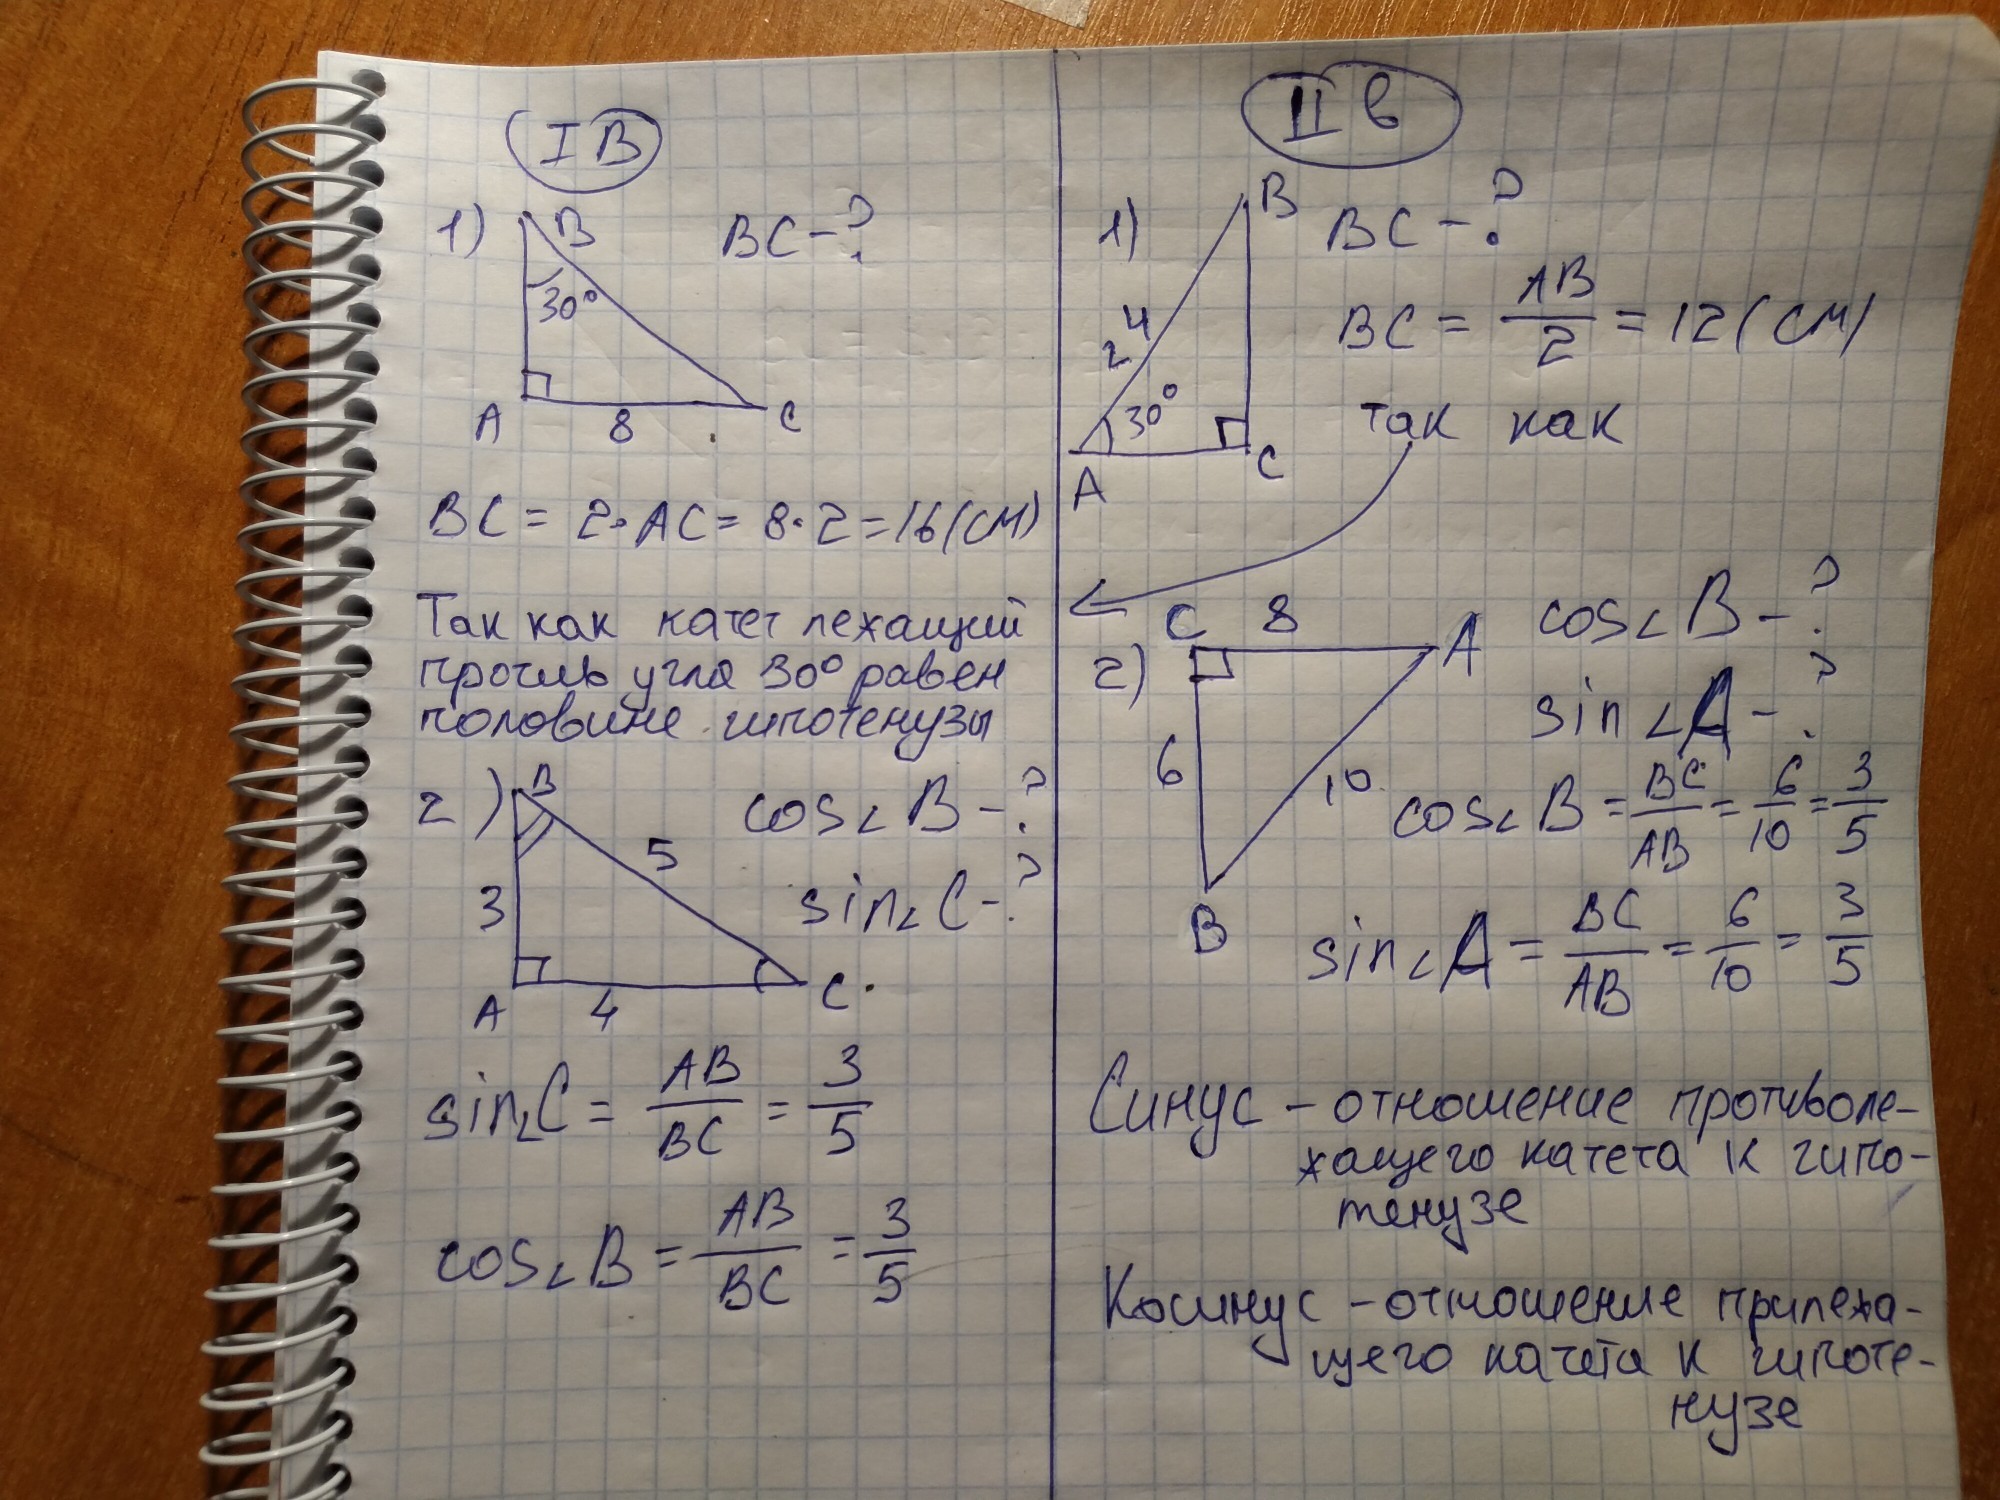 I В
1)
B
BC - ?
30°
A
8
C
BC = 2 · AC = 8 · 2 = 16 (см)
Так как катет лежащий
против угла 30° равен
половине гипотенузы
2)
B
cos∠B - ?
5
3
sin∠C - ?
A
4
C
sin∠C = AB/BC = 3/5
cos∠B = AB/BC = 3/5
II в
1)
B
BC - ?
24
BC = AB/2 = 12 (см)
30°
так как
A
C
2)
C
8
A
cos∠B - ?
sin∠A - ?
6
10
cos∠B = BC/AB = 6/10 = 3/5
B
sin∠A = BC/AB = 6/10 = 3/5
Синус - отношение противоле-
жащего катета к гипо-
тенузе
Косинус - отношение прилежа-
щего катета к гипоте-
нузе